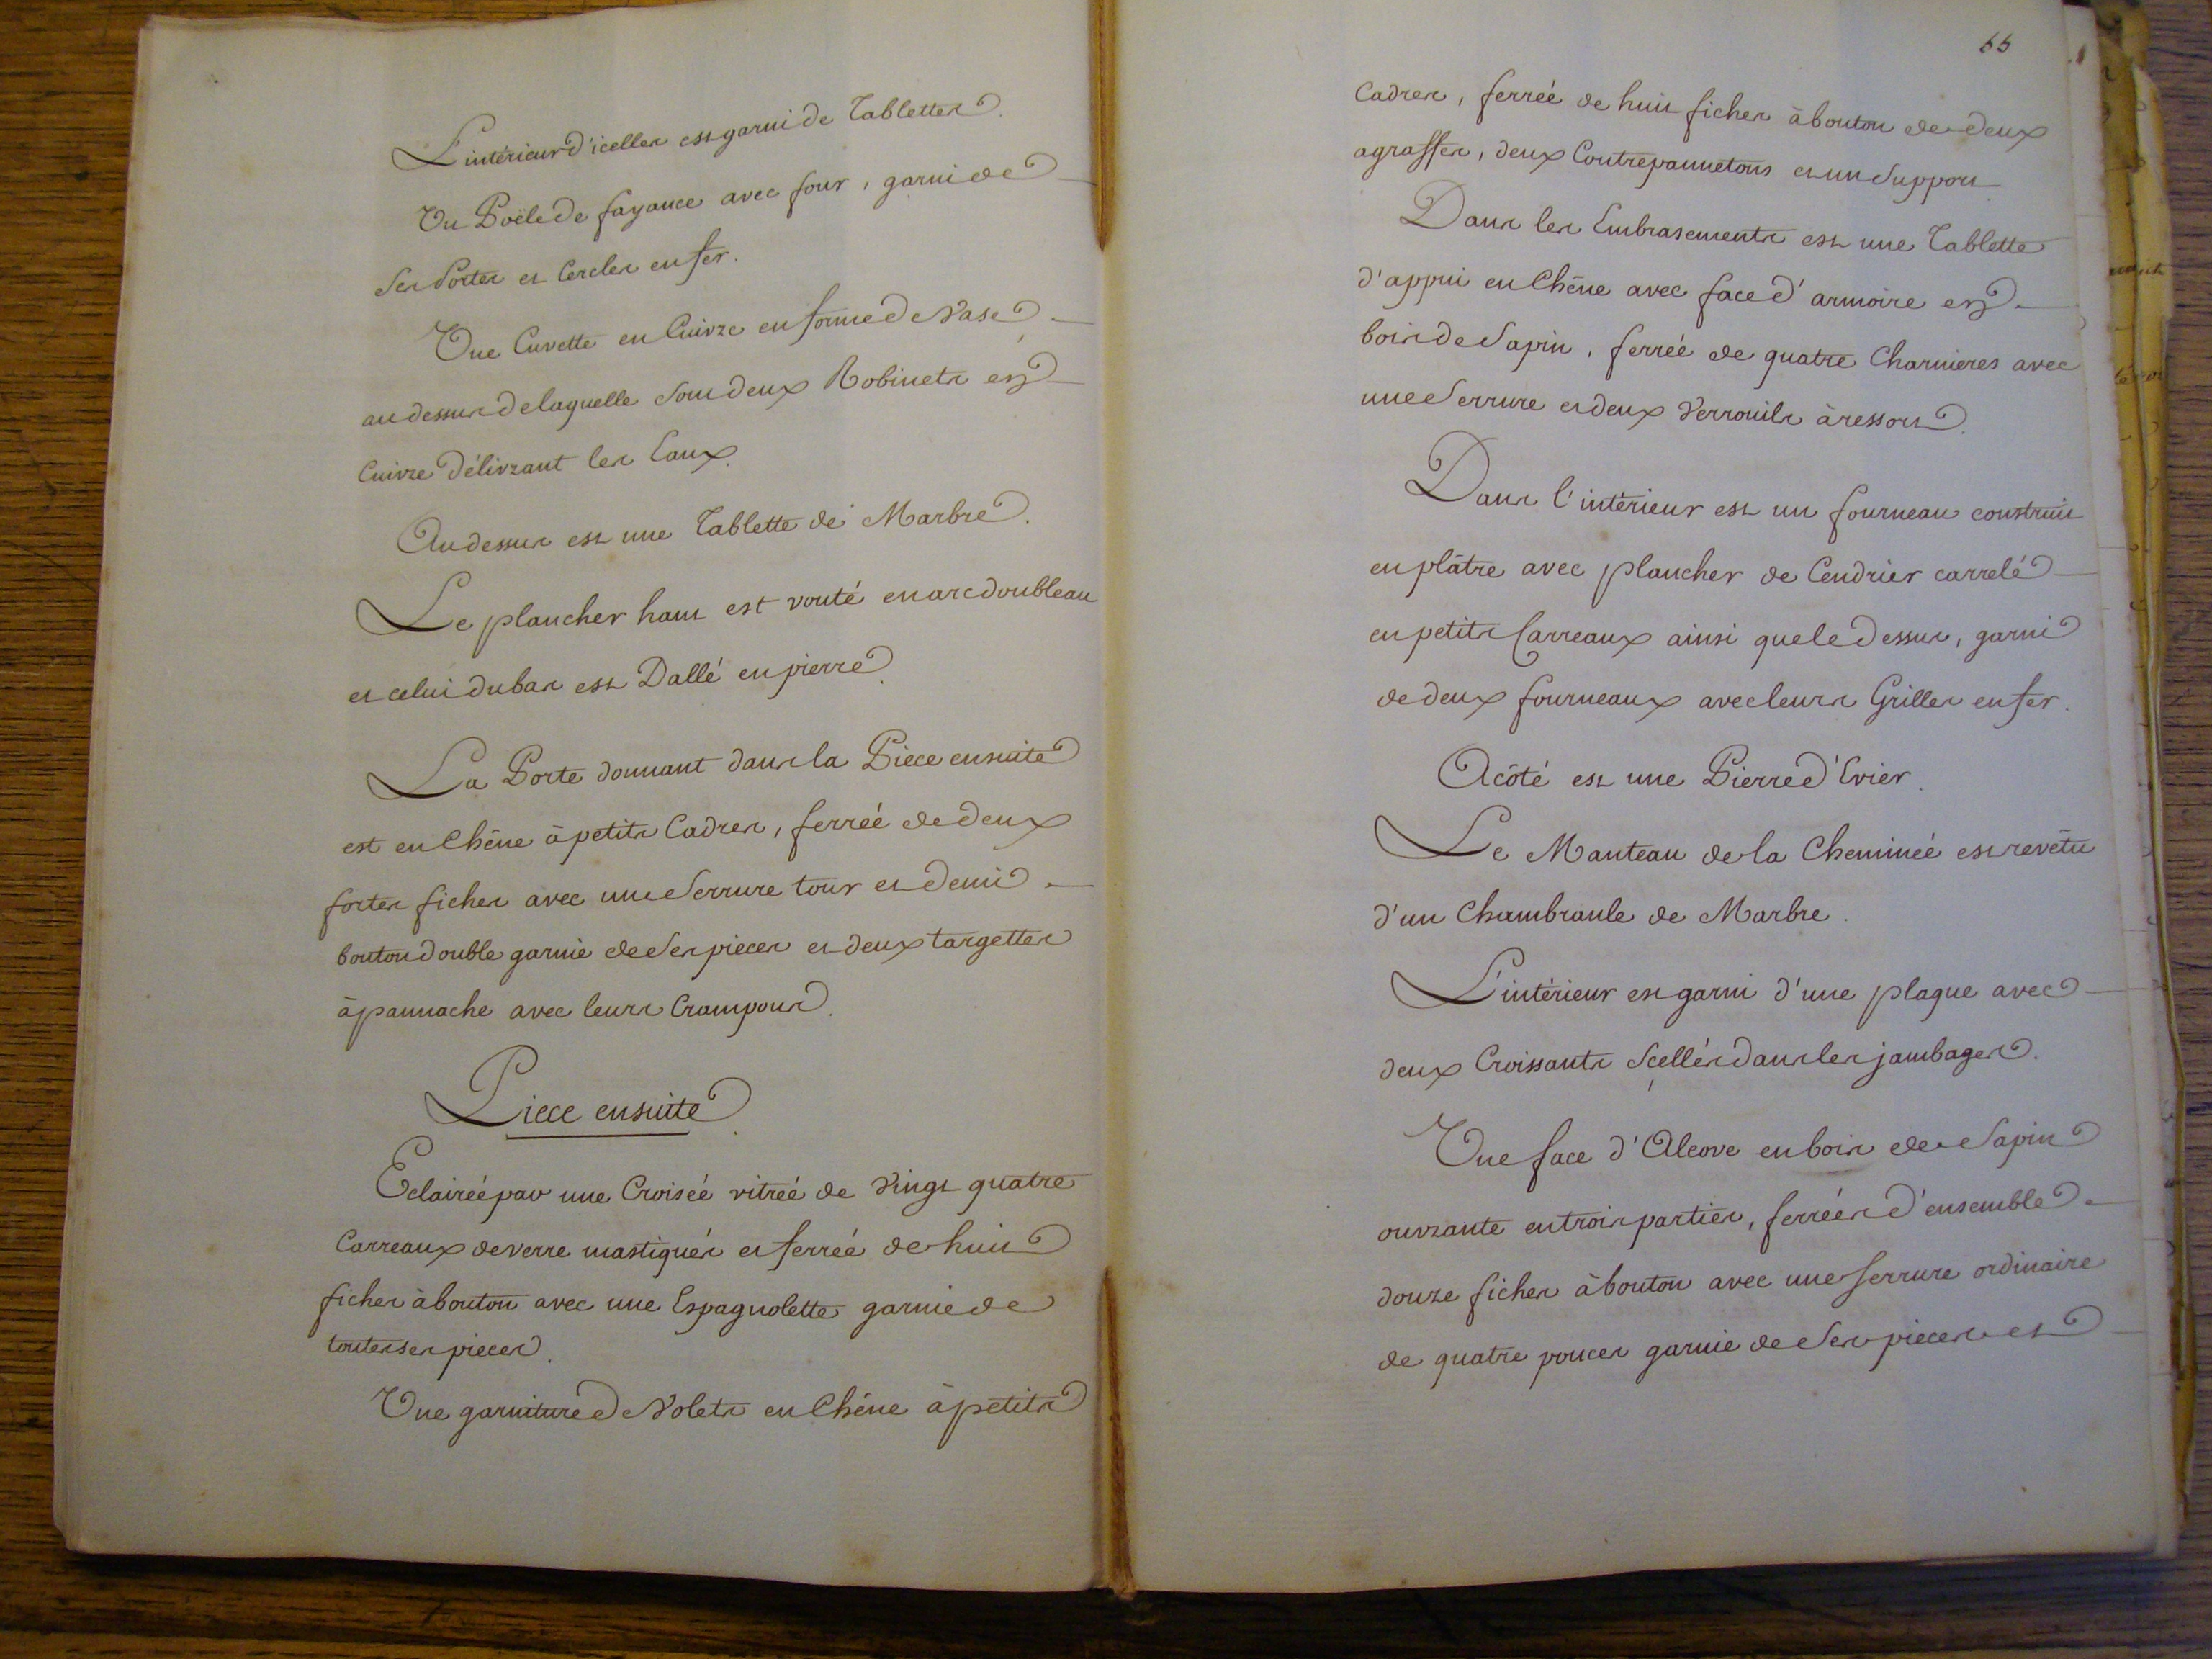 L'intérieur d'icelles est garni de Tablettes.
Un Poële de fayance avec four, garni de
Ses Portes et Cercles en fer.
Une Cuvette en Cuivre en forme de Vase
au dessus de laquelle Sont deux Robinets en
Cuivre délivrant les Eaux.
Au dessus est une Tablette de Marbre.
Le plancher haut est vouté en arc doubleau
et celui du bas est Dallé en pierre.
La Porte donnant dans la Piece ensuite
est en Chêne à petits Cadres, ferréé de deux
fortes fiches avec une Serrure tour et demi
bouton double garnie de Ses pieces et deux targettes
à pannache avec leurs Crampons.
Piece ensuite.
Eclairéé par une Croiséé vitréé de Vingt quatre
Carreaux de verre mastiqués et ferréé de huit
fiches à bouton avec une Espagnolette garnie de
toutes ses pieces.
Une garniture de Volets en Chêne à petits
55
Cadres, ferréé de huit fiches à bouton de deux
agraffes, deux Contrepannetons et un Support
Dans les Embrasements est une Tablette
d'appui en Chêne avec face d'armoire en
bois de Sapin, ferréé de quatre Charnieres avec
une Serrure et deux Verrouils à ressort.
Dans l'intérieur est un fourneau construit
en plâtre avec plancher de Cendrier carrelé
en petits Carreaux ainsi que le dessus, garni
de deux fourneaux avec leurs Grilles en fer.
A côté est une Pierre d'Evier.
Le Manteau de la Cheminéé est revêtu
d'un Chambranle de Marbre.
L'intérieur est garni d'une plaque avec
deux Croissants Scellés dans les jambages.
Une face d'Alcove en bois de Sapin
ouvrante en trois parties, ferréés d'ensemble
douze fiches à bouton avec une serrure ordinaire
de quatre pouces garnie de Ses pieces et